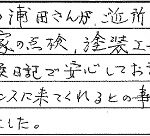 の浦田さんが、近所
家の点検、塗装工
換日記で安心してお
ンスに来てくれるとの事
した。